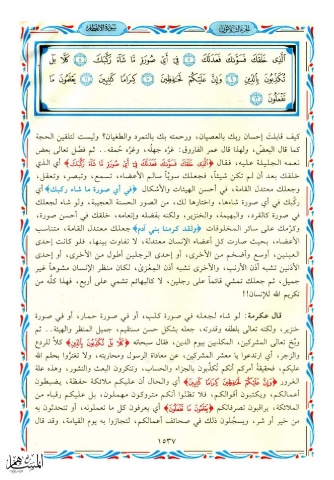 سورة الانفطار
الجزء الثلاثون
الَّذِي خَلَقَكَ فَسَوَّىٰكَ فَعَدَلَكَ ۝ فِي أَيِّ صُورَةٍ مَّا شَاءَ رَكَّبَكَ ۝ كَلَّا بَلْ
تُكَذِّبُونَ بِالدِّينِ ۝ وَإِنَّ عَلَيْكُمْ لَحَٰفِظِينَ ۝ كِرَامًا كَٰتِبِينَ ۝ يَعْلَمُونَ مَا
تَفْعَلُونَ
كيف قابلت إحسان ربك بالعصيان، ورحمته بك بالتمرد والطغيان؟ وليست لتلقين الحجة
كما قال البعض، ولهذا قال عمر الفاروق: غرّه جهله، وغرّه حُمقه.. ثم فصَّل تعالى بعض
نعمه الجليلة عليه، فقال ﴿الَّذِي خَلَقَكَ فَسَوَّىٰكَ فَعَدَلَكَ فِي أَيِّ صُورَةٍ مَّا شَاءَ رَكَّبَكَ﴾ أي الذي
خلقك بعد أن لم تكن شيئاً، فجعلك سوياً سالم الأعضاء، تسمع، وتبصر، وتعقل،
وجعلك معتدل القامة، في أحسن الهيئات والأشكال ﴿في أي صورة ما شاء ركبك﴾ أي
ركّبك في أي صورة شاءها، واختارها لك، من الصور الحسنة العجيبة، ولو شاء لجعلك
في صورة كالقرد، والبهيمة، والخنزير، ولكنه بفضله وإنعامه، خلقك في أحسن صورة،
وكرّمك على سائر المخلوقات ﴿ولقد كرمنا بني آدم﴾ جعلك معتدل القامة، متناسب
الأعضاء، بحيث صارت كل أعضاء الإنسان معتدلة، لا تفاوت بينها، فلو كانت إحدى
العينين، أوسع وأضخم من الأخرى، أو إحدى الرجلين أطول من الأخرى، أو إحدى
الأذنين تشبه أذن الأرنب، والأخرى تشبه أذن الـمِعْزى، لكان منظر الإنسان مشوهاً غير
جميل، ثم جعلك تمشي قائماً على رجلين، لا كالبهائم تمشي على أربع، فهذا كله من
تكريم الله للإنسان!!
قال عكرمة: لو شاء لجعله في صورة كلب، أو في صورة حمار، أو في صورة
خنزير، ولكنه تعالى بلطفه وقدرته، جعله بشكل حسن مستقيم، جميل المنظر والهيئة.. ثم
وبّخ تعالى المشركين، المكذبين بيوم الدين، فقال سبحانه ﴿كَلَّا بَلْ تُكَذِّبُونَ بِالدِّينِ﴾ كلاّ للردع
والزجر، أي ارتدعوا يا معشر المشركين، عن معاداة الرسول ومحاربته، ولا تغترّوا بحلم الله
عليكم، فحقيقة أمركم أنكم تُكذبون بالجزاء والحساب، وتنكرون البعث والنشور، وهذه علة
الغرور ﴿وَإِنَّ عَلَيْكُمْ لَحَٰفِظِينَ كِرَامًا كَٰتِبِينَ﴾ أي والحال أن عليكم ملائكة حفظة، يضبطون
أعمالكم، ويكتبون أقوالكم، فلا تظنوا أنكم متروكون مهملون، بل عليكم رقباء من
الملائكة، يراقبون تصرفاتكم ﴿يَعْلَمُونَ مَا تَفْعَلُونَ﴾ أي يعرفون كل ما تعملونه، أو تتحدثون به
من خير أو شر، ويسجّلون ذلك في صحائف أعمالكم، لتجازوا به يوم القيامة، وقد قال
١٥٣٧